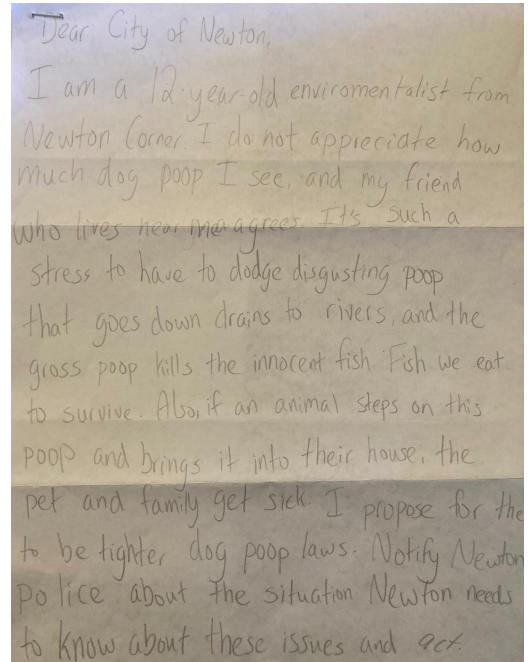 Dear City of Newton,
I am a 12-year-old enviromentalist from
Newton Corner. I do not appreciate how
much dog poop I see, and my friend
who lives near me agrees. It's such a
stress to have to dodge disgusting poop
that goes down drains to rivers, and the
gross poop kills the innocent fish. Fish we eat
to survive. Also, if an animal steps on this
poop and brings it into their house, the
pet and family get sick. I propose for the
to be tighter dog poop laws. Notify Newton
police about the situation. Newton needs
to know about these issues and act.